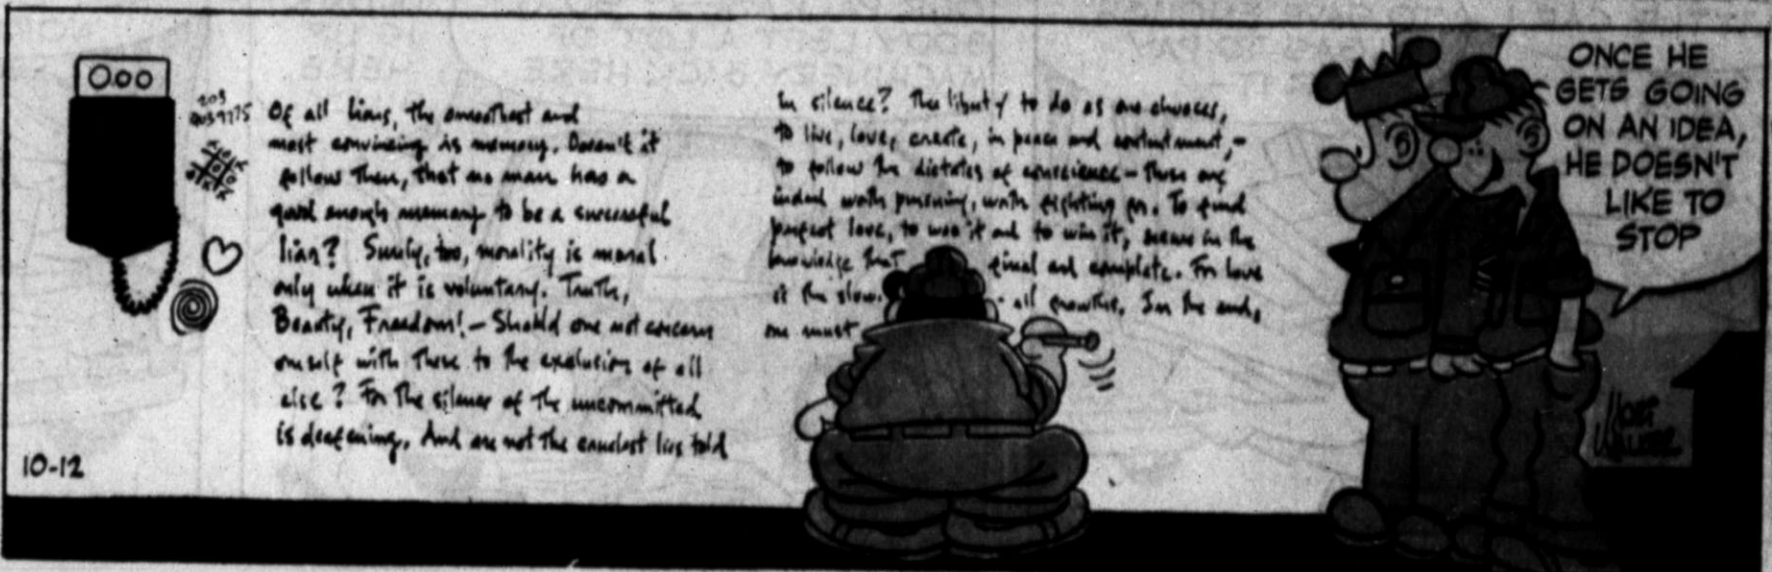 203
Of all liars, the smoothest and
most convincing is memory. Doesn't it
follow then, that no man has a
good enough memory to be a successful
liar? Surely, too, morality is moral
only when it is voluntary. Truth,
Beauty, Freedom! - Should one not concern
oneself with these to the exclusion of all
else? For the silence of the uncommitted
is deafening. And are not the cruelest lies told
in silence? The liberty to do as one chooses,
to live, love, create, in peace and contentment, -
to follow the dictates of conscience - these are
indeed worth pursuing, worth fighting for. To find
perfect love, to woo it and to win it, secure in the
knowledge that final and complete. For love
is the slow. all growths. In the end,
one must
ONCE HE
GETS GOING
ON AN IDEA,
HE DOESN'T
LIKE TO
STOP
MORT
WALKER
10-12